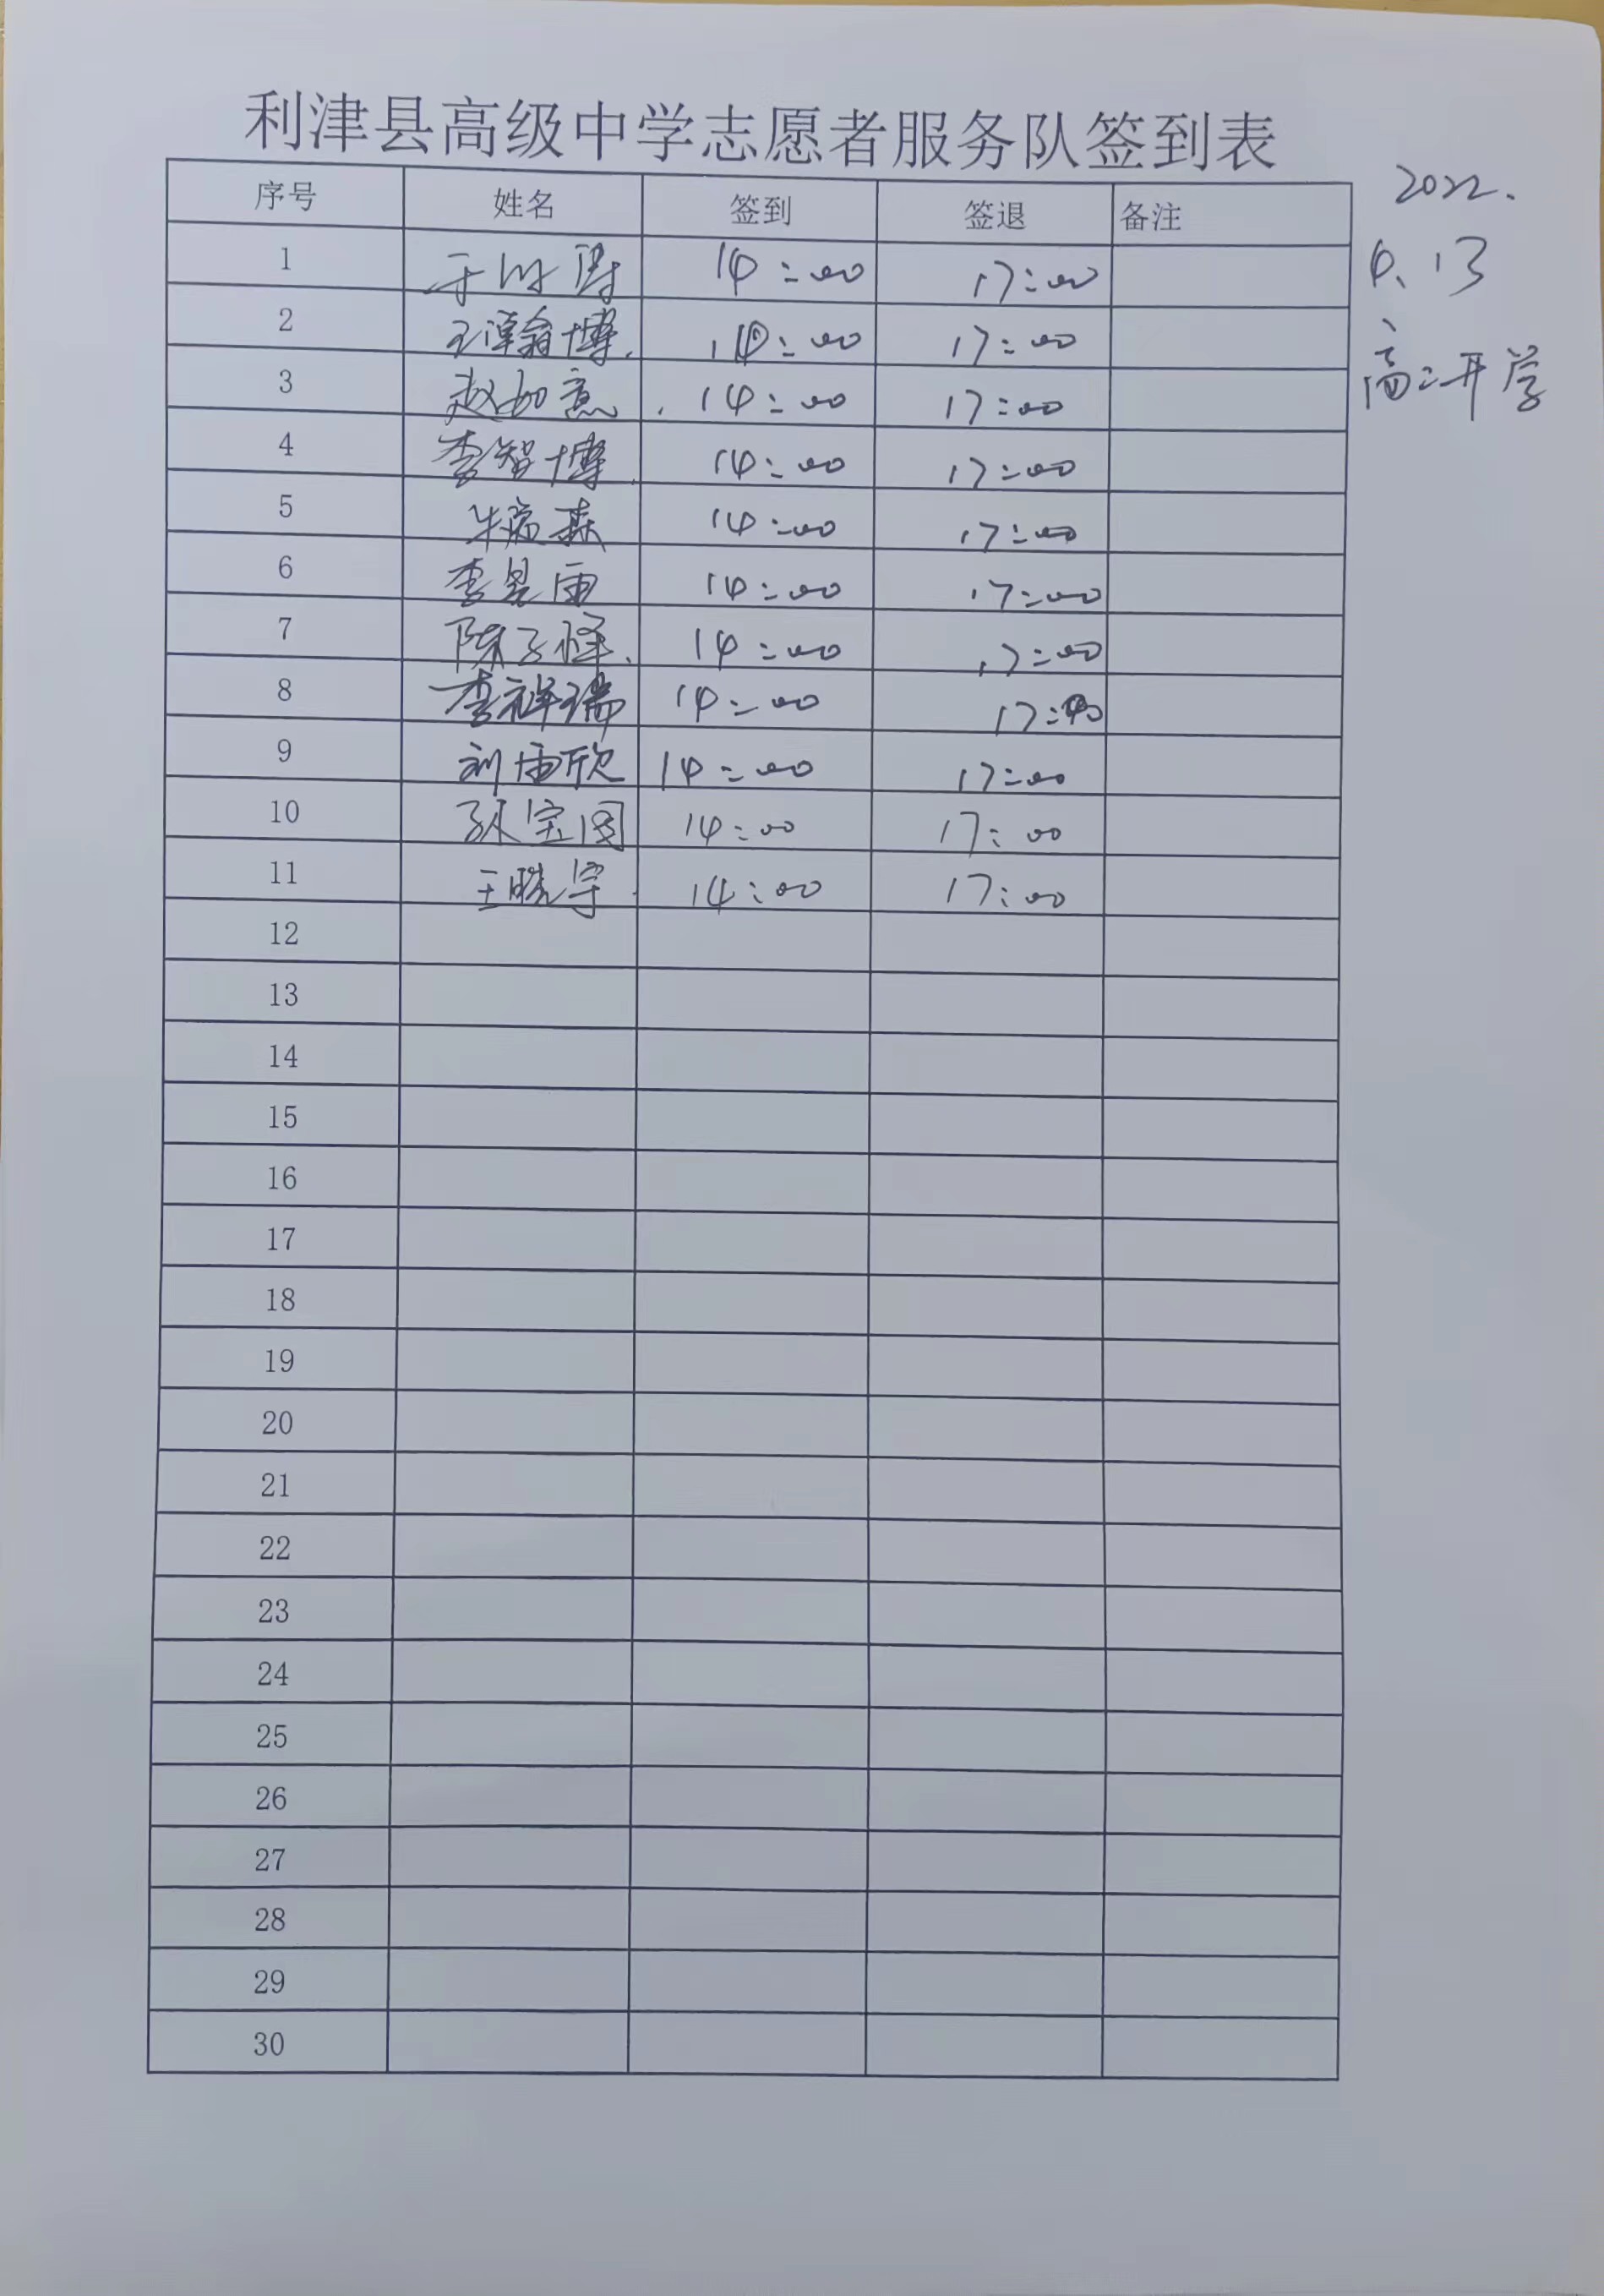 利津县高级中学志愿者服务队签到表
2022.
序号 姓名 签到 签退 备注
6.13
高二开学
1 14:00 17:00
2 王潭翰博 14:00 17:00
3 赵如意 14:00 17:00
4 李智博 14:00 17:00
5 牛瑞森 14:00 17:00
6 李昱雨 14:00 17:00
7 陈子怿 14:00 17:00
8 李祥瑞 14:00 17:00
9 刘雨欣 14:00 17:00
10 孙宝国 14:00 17:00
11 王晓宇 14:00 17:00
12
13
14
15
16
17
18
19
20
21
22
23
24
25
26
27
28
29
30